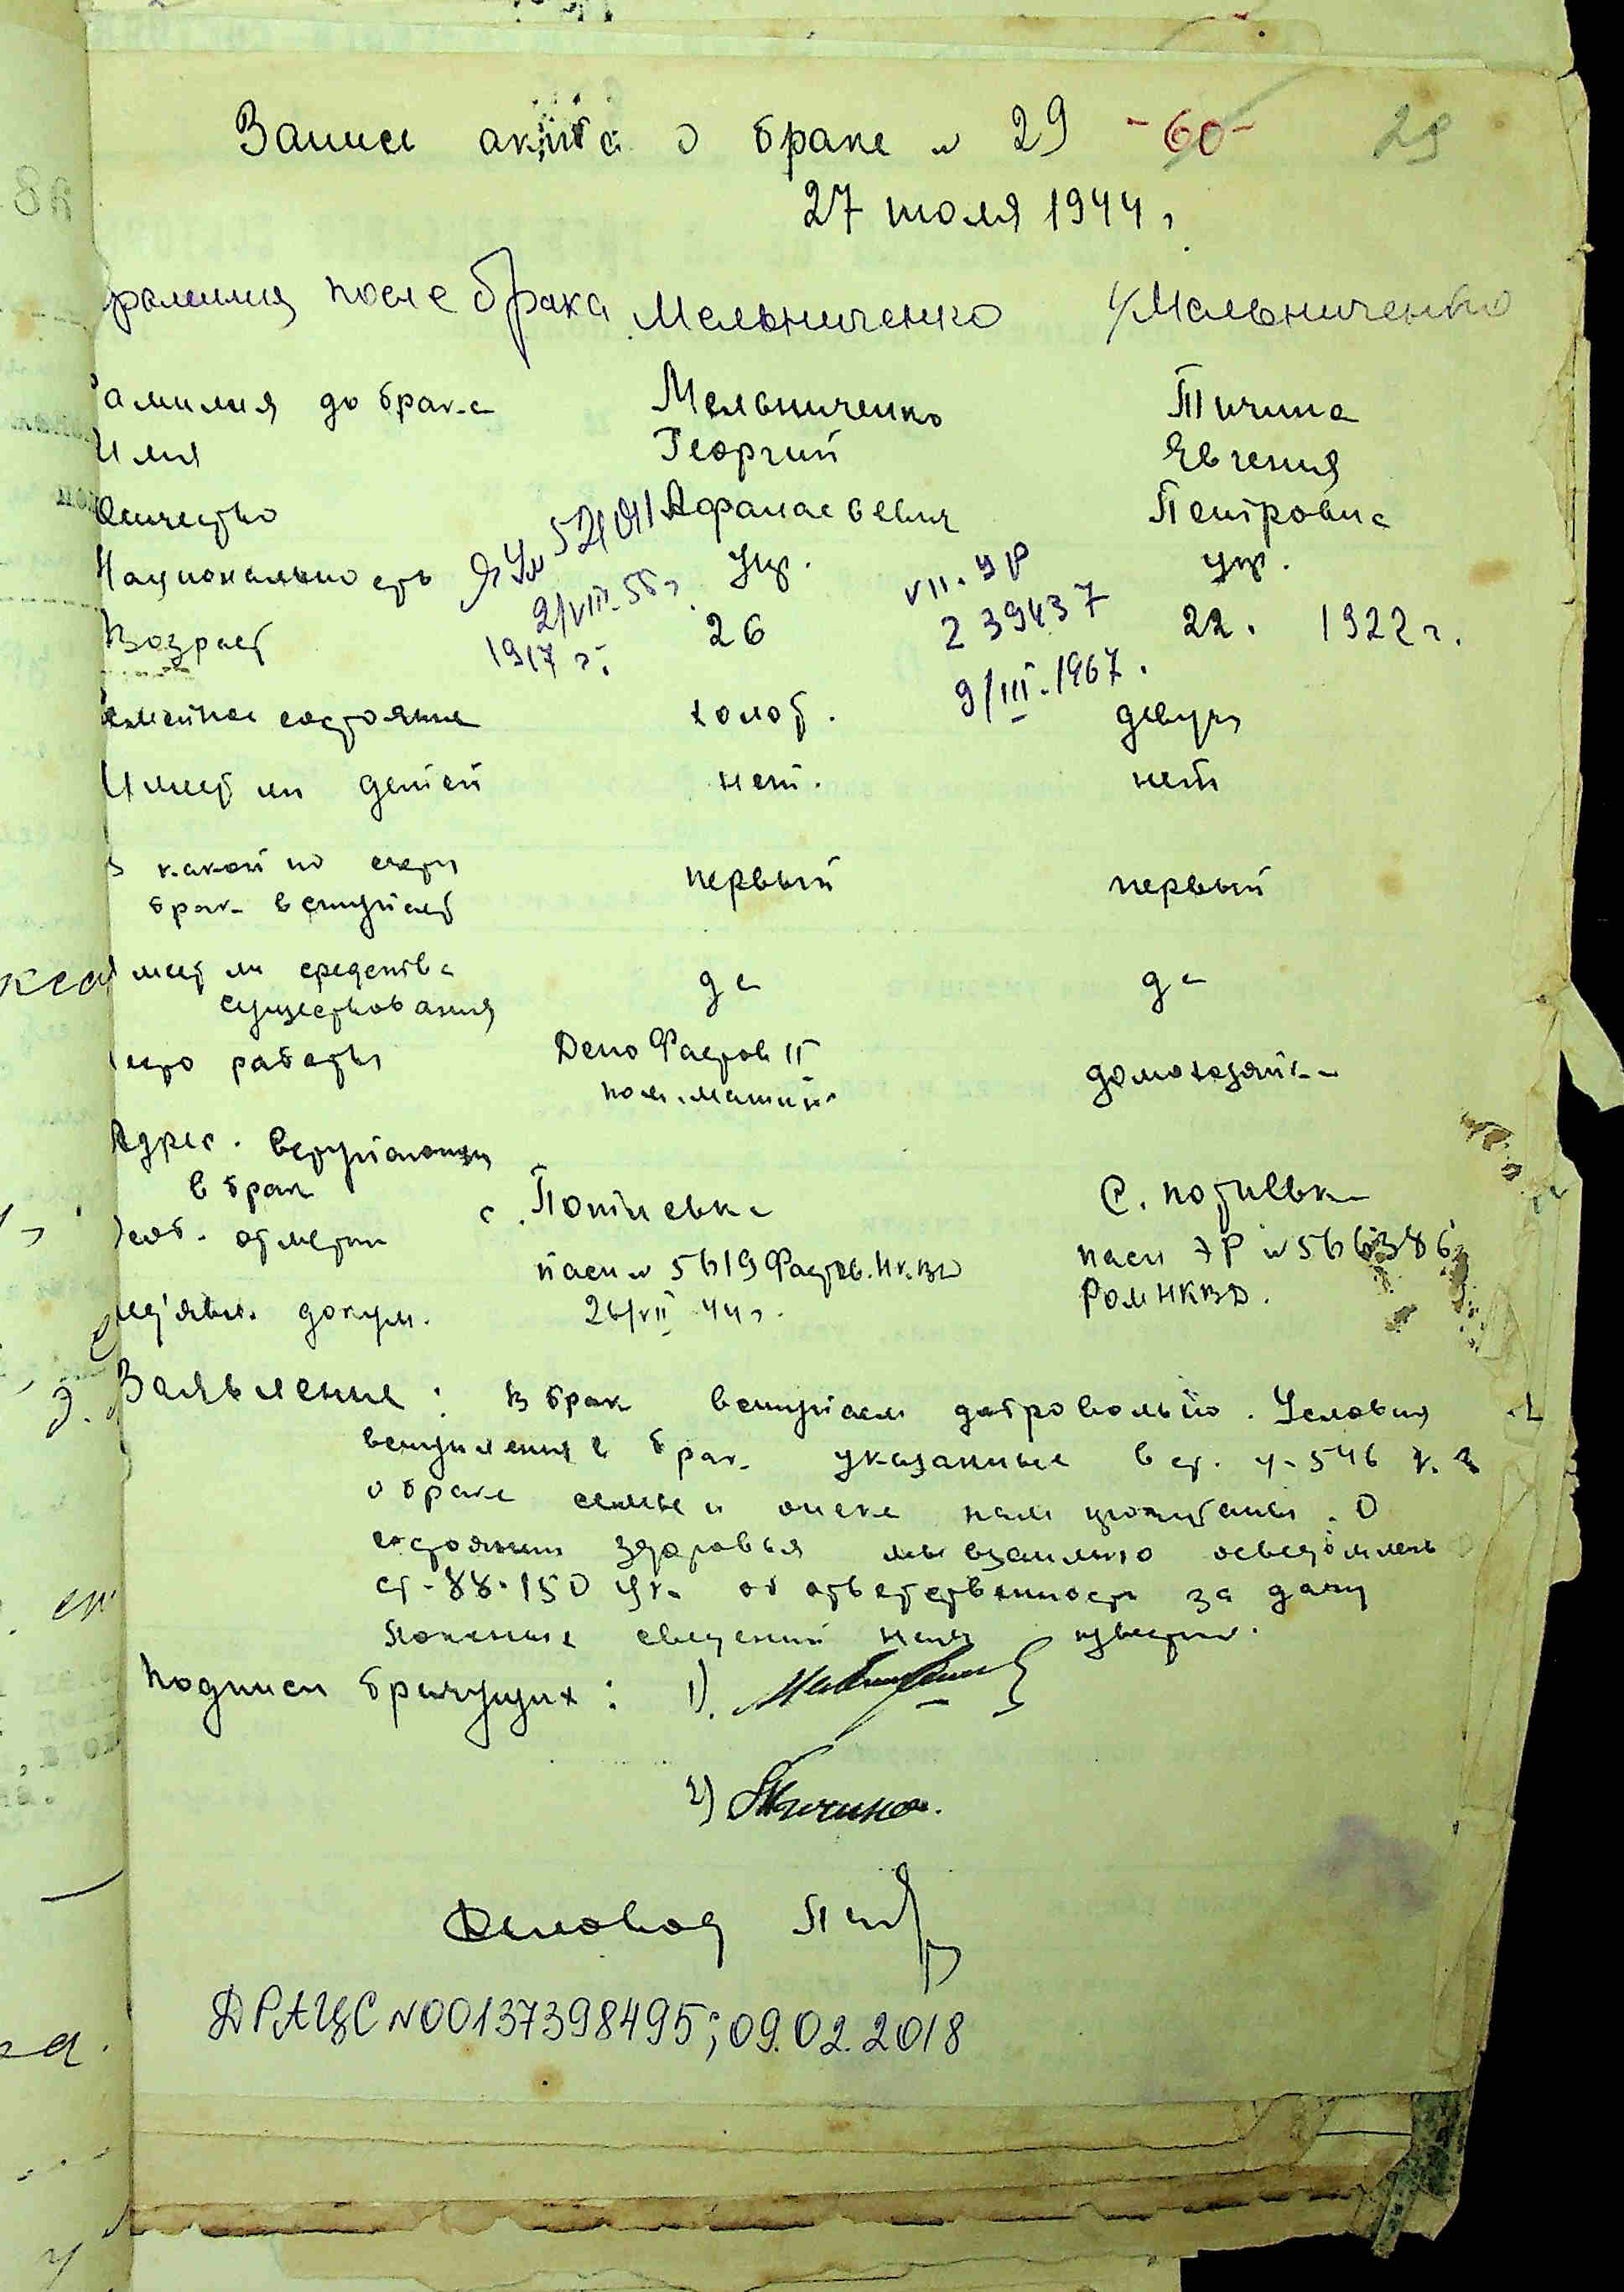 Запись акта о браке № 29 -60- 29
27 июля 1944 г.
Фамилия после брака Мельниченко Мельниченко
Фамилия до брака Мельниченко Тичина
Имя Георгий Евгения
Отчество Афанасьевич Петровна
Национальность укр. укр.
2/VIII-55г. VII-УР
Возраст 1917 г. 26 239437 22. 1922 г.
9/III-1967.
Семейное состояние холост. девица
Имеет ли детей нет. нет
В какой по счету
брак вступает первый первый
Имеет ли средства да да
существования
Место работы Депо Фастов II домохозяйка
пом. машин.
Адрес. вступающих
в брак с. Потиевка с. Потиевка
Особ. отметки
пасп № 5619 Фастов. НКВД пасп ЭР № 566386
пред'явл. докум. 26/VII 44 г. РОМ НКВД.
Заявление: В брак вступаем добровольно. Условия
вступления в брак указанные в ст.
о браке семье и опеке нам прочитаны. О
состоянии здоровья мы взаимно осведомлены
ст. 88-150 УК об ответственности за дачу
ложных сведений нам известно.
Подписи брачущихся: 1).
2) Тичина.
Деловод
ДРАЦС N00137398495; 09.02.2018